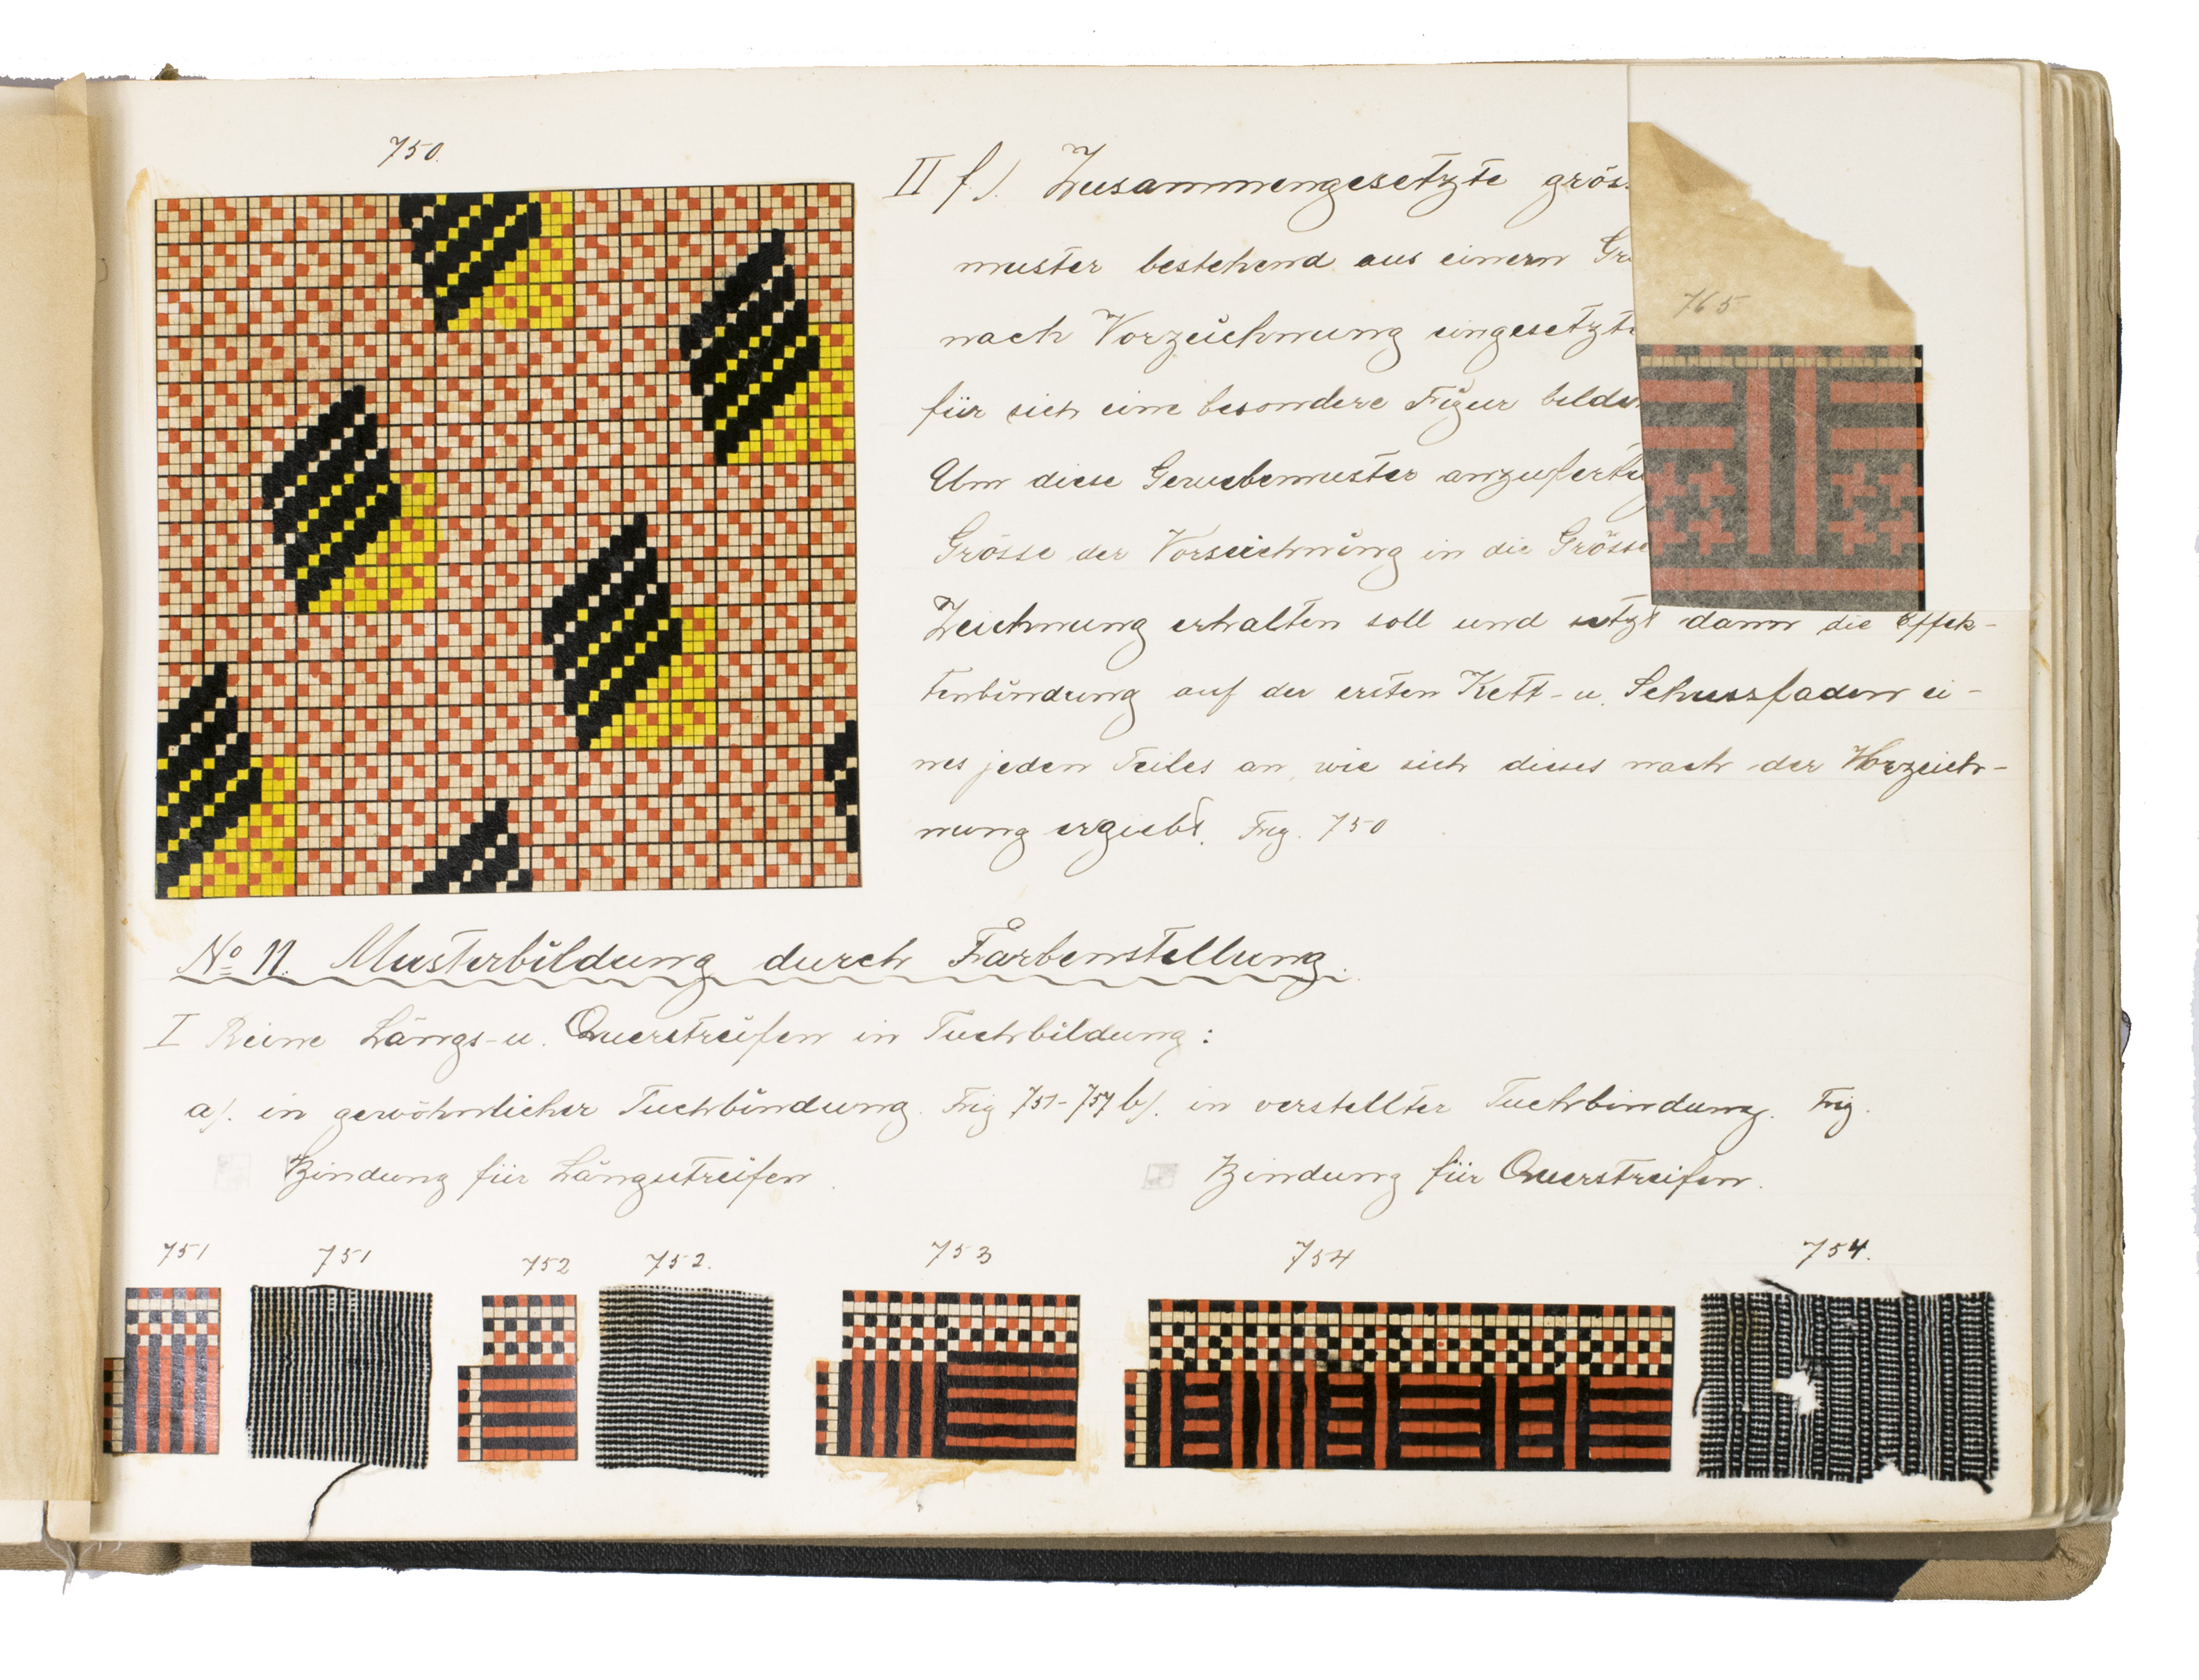 750.
II f.) Zusammengesetzte grös
muster bestehend aus einem Gr
nach Vorzeichnung eingesetzte
für sich eine besondere Figur bilden
Um diese Gewebemuster anzufertig
Grösse der Vorzeichnung in die Grösse
765
Zeichnung erhalten soll und setzt dann die Effek-
tenbindung auf der ersten Kett- u. Schussfaden ei-
nes jeden Teiles an, wie sich dieses nach der Vorzeich-
nung ergiebt. Fig. 750
No 11. Musterbildung durch Farbenstellung.
I Reine Längs- u. Querstreifen in Tuchbildung:
a). in gewöhnlicher Tuchbindung. Fig 751-754 b). in verstellter Tuchbindung. Fig.
Bindung für Längsstreifen. Bindung für Querstreifen.
751 751 752 752. 753 754 754.